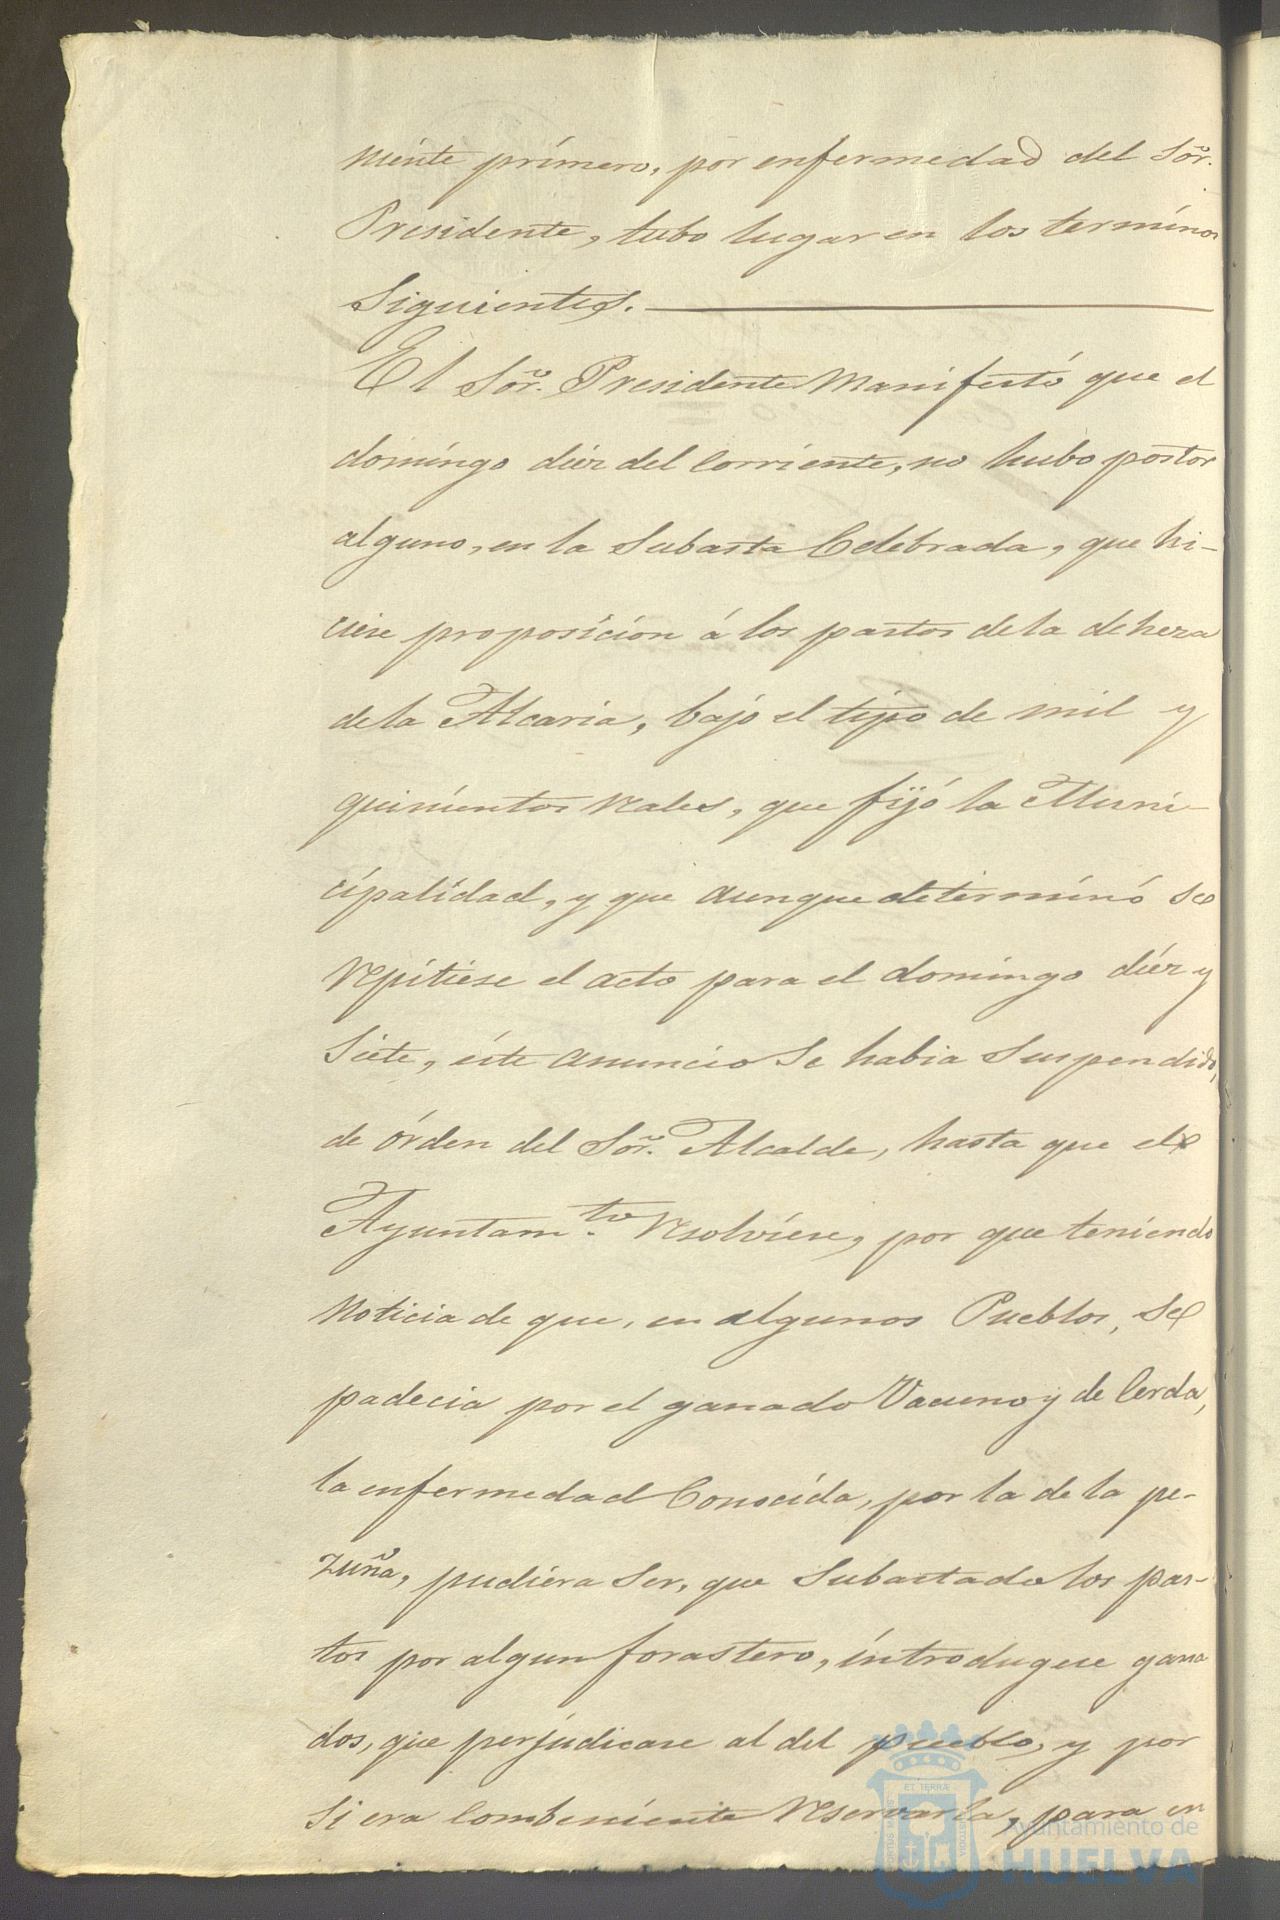 niente primero, por enfermedad del Sor.
Presidente, tubo lugar en los términos
Siguientes.
El Sor. Presidente Manifestó que el
domingo diez del Corriente, no hubo postor
alguno, en la Subasta Celebrada, que hi-
ciese proposicion á los pastos de la deheza
de la Alcaria, bajo el tipo de mil y
quinientos reales, que fijó la Muni-
cipalidad, y que aunque determinó se
repitiese el acto para el domingo diez y
Siete, éste anuncio Se habia Suspendido,
de órden del Sor. Alcalde, hasta que el
Ayuntam.to resolviese, por que teniendo
Noticia de que, en algunos Pueblos, se
padecia por el ganado Vacuno y de Cerda,
la enfermedad Conocida, por la de la pe-
zuña, pudiera Ser, que Subastado los pas-
tos por algun forastero, introdugese gana
dos, que perjudicase al del pueblo, y por
Si era Combeniente reservarla, para en
ET TERRÆ
PORTUS MARIS
CUSTODIA
Ayuntamiento de
HUELVA